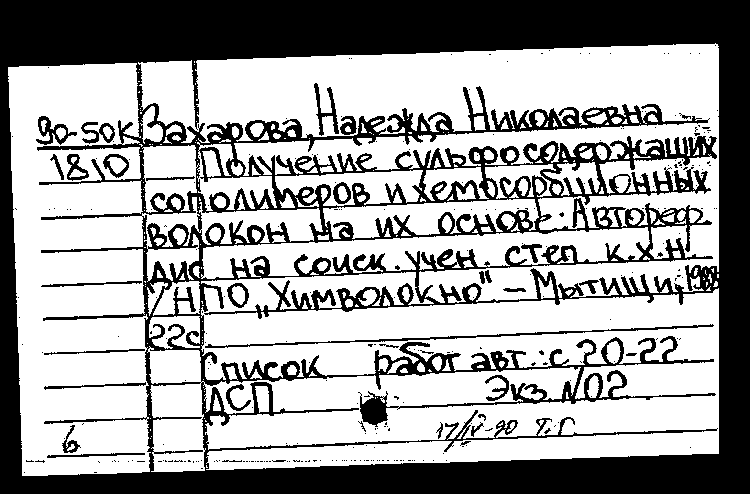 90-50К Захарова, Надежда Николаевна
1810 Получение сульфосодержащих
сополимеров и хемосорбционных
волокон на их основе: Автореф.
дис. на соиск. учен. степ. к.х.н.
/НПО „Химволокно" - Мытищи, 1988
22с.
Список работ авт.: с 20-22
ДСП. Экз. №02
6 17/IV-90 Т.Г.